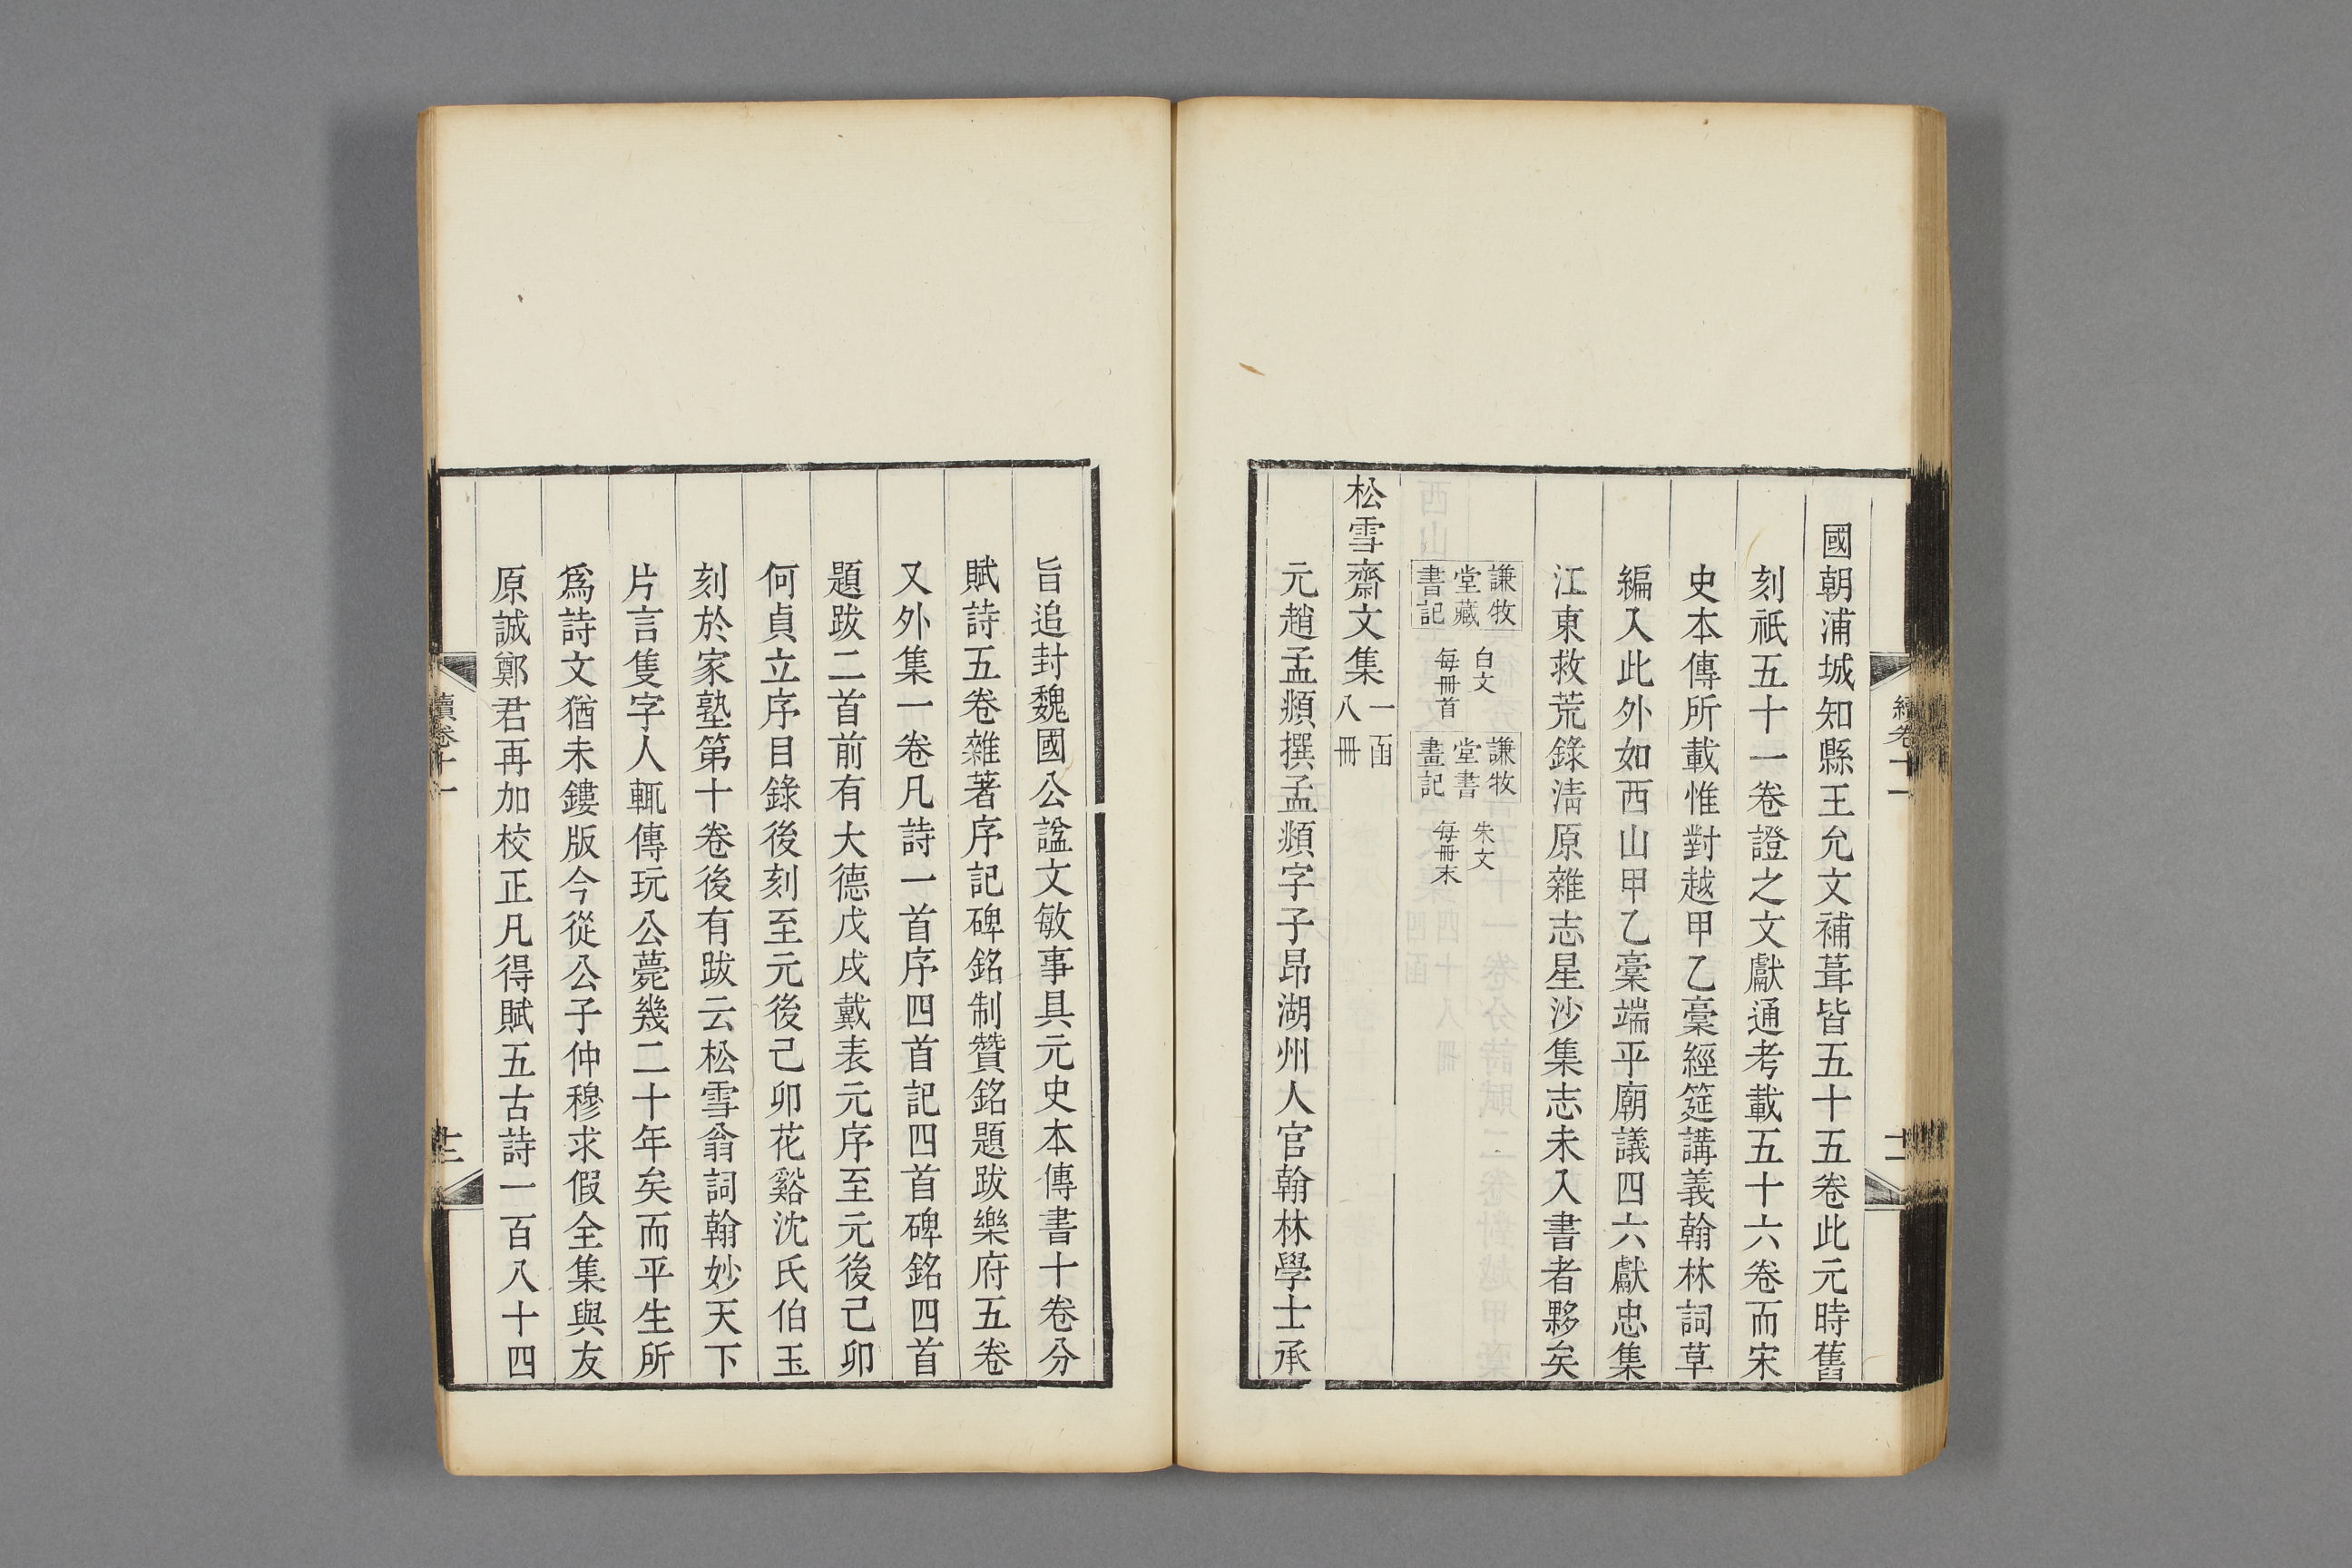 國朝浦城知縣王允文補葺皆五十五卷此元時舊
刻祇五十一卷證之文獻通考載五十六卷而宋
史本傳所載惟對越甲乙稾經筵講義翰林詞草
編入此外如西山甲乙稾端平廟議四六獻忠集
江東救荒錄淸原雜志星沙集志未入書者夥矣
謙牧
堂藏
書記
白文
每冊首
謙牧
堂書
畫記
朱文
每冊末
松雪齋文集
一函
八冊
元趙孟頫撰孟頫字子昂湖州人官翰林學士承
續卷十一
十二
旨追封魏國公諡文敏事具元史本傳書十卷分
賦詩五卷雜著序記碑銘制贊銘題跋樂府五卷
又外集一卷凡詩一首序四首記四首碑銘四首
題跋二首前有大德戊戌戴表元序至元後己卯
何貞立序目錄後刻至元後己卯花谿沈氏伯玉
刻於家塾第十卷後有跋云松雪翁詞翰妙天下
片言隻字人輒傳玩公薨幾二十年矣而平生所
爲詩文猶未鏤版今從公子仲穆求假全集與友
原誠鄭君再加校正凡得賦五古詩一百八十四
續卷十一